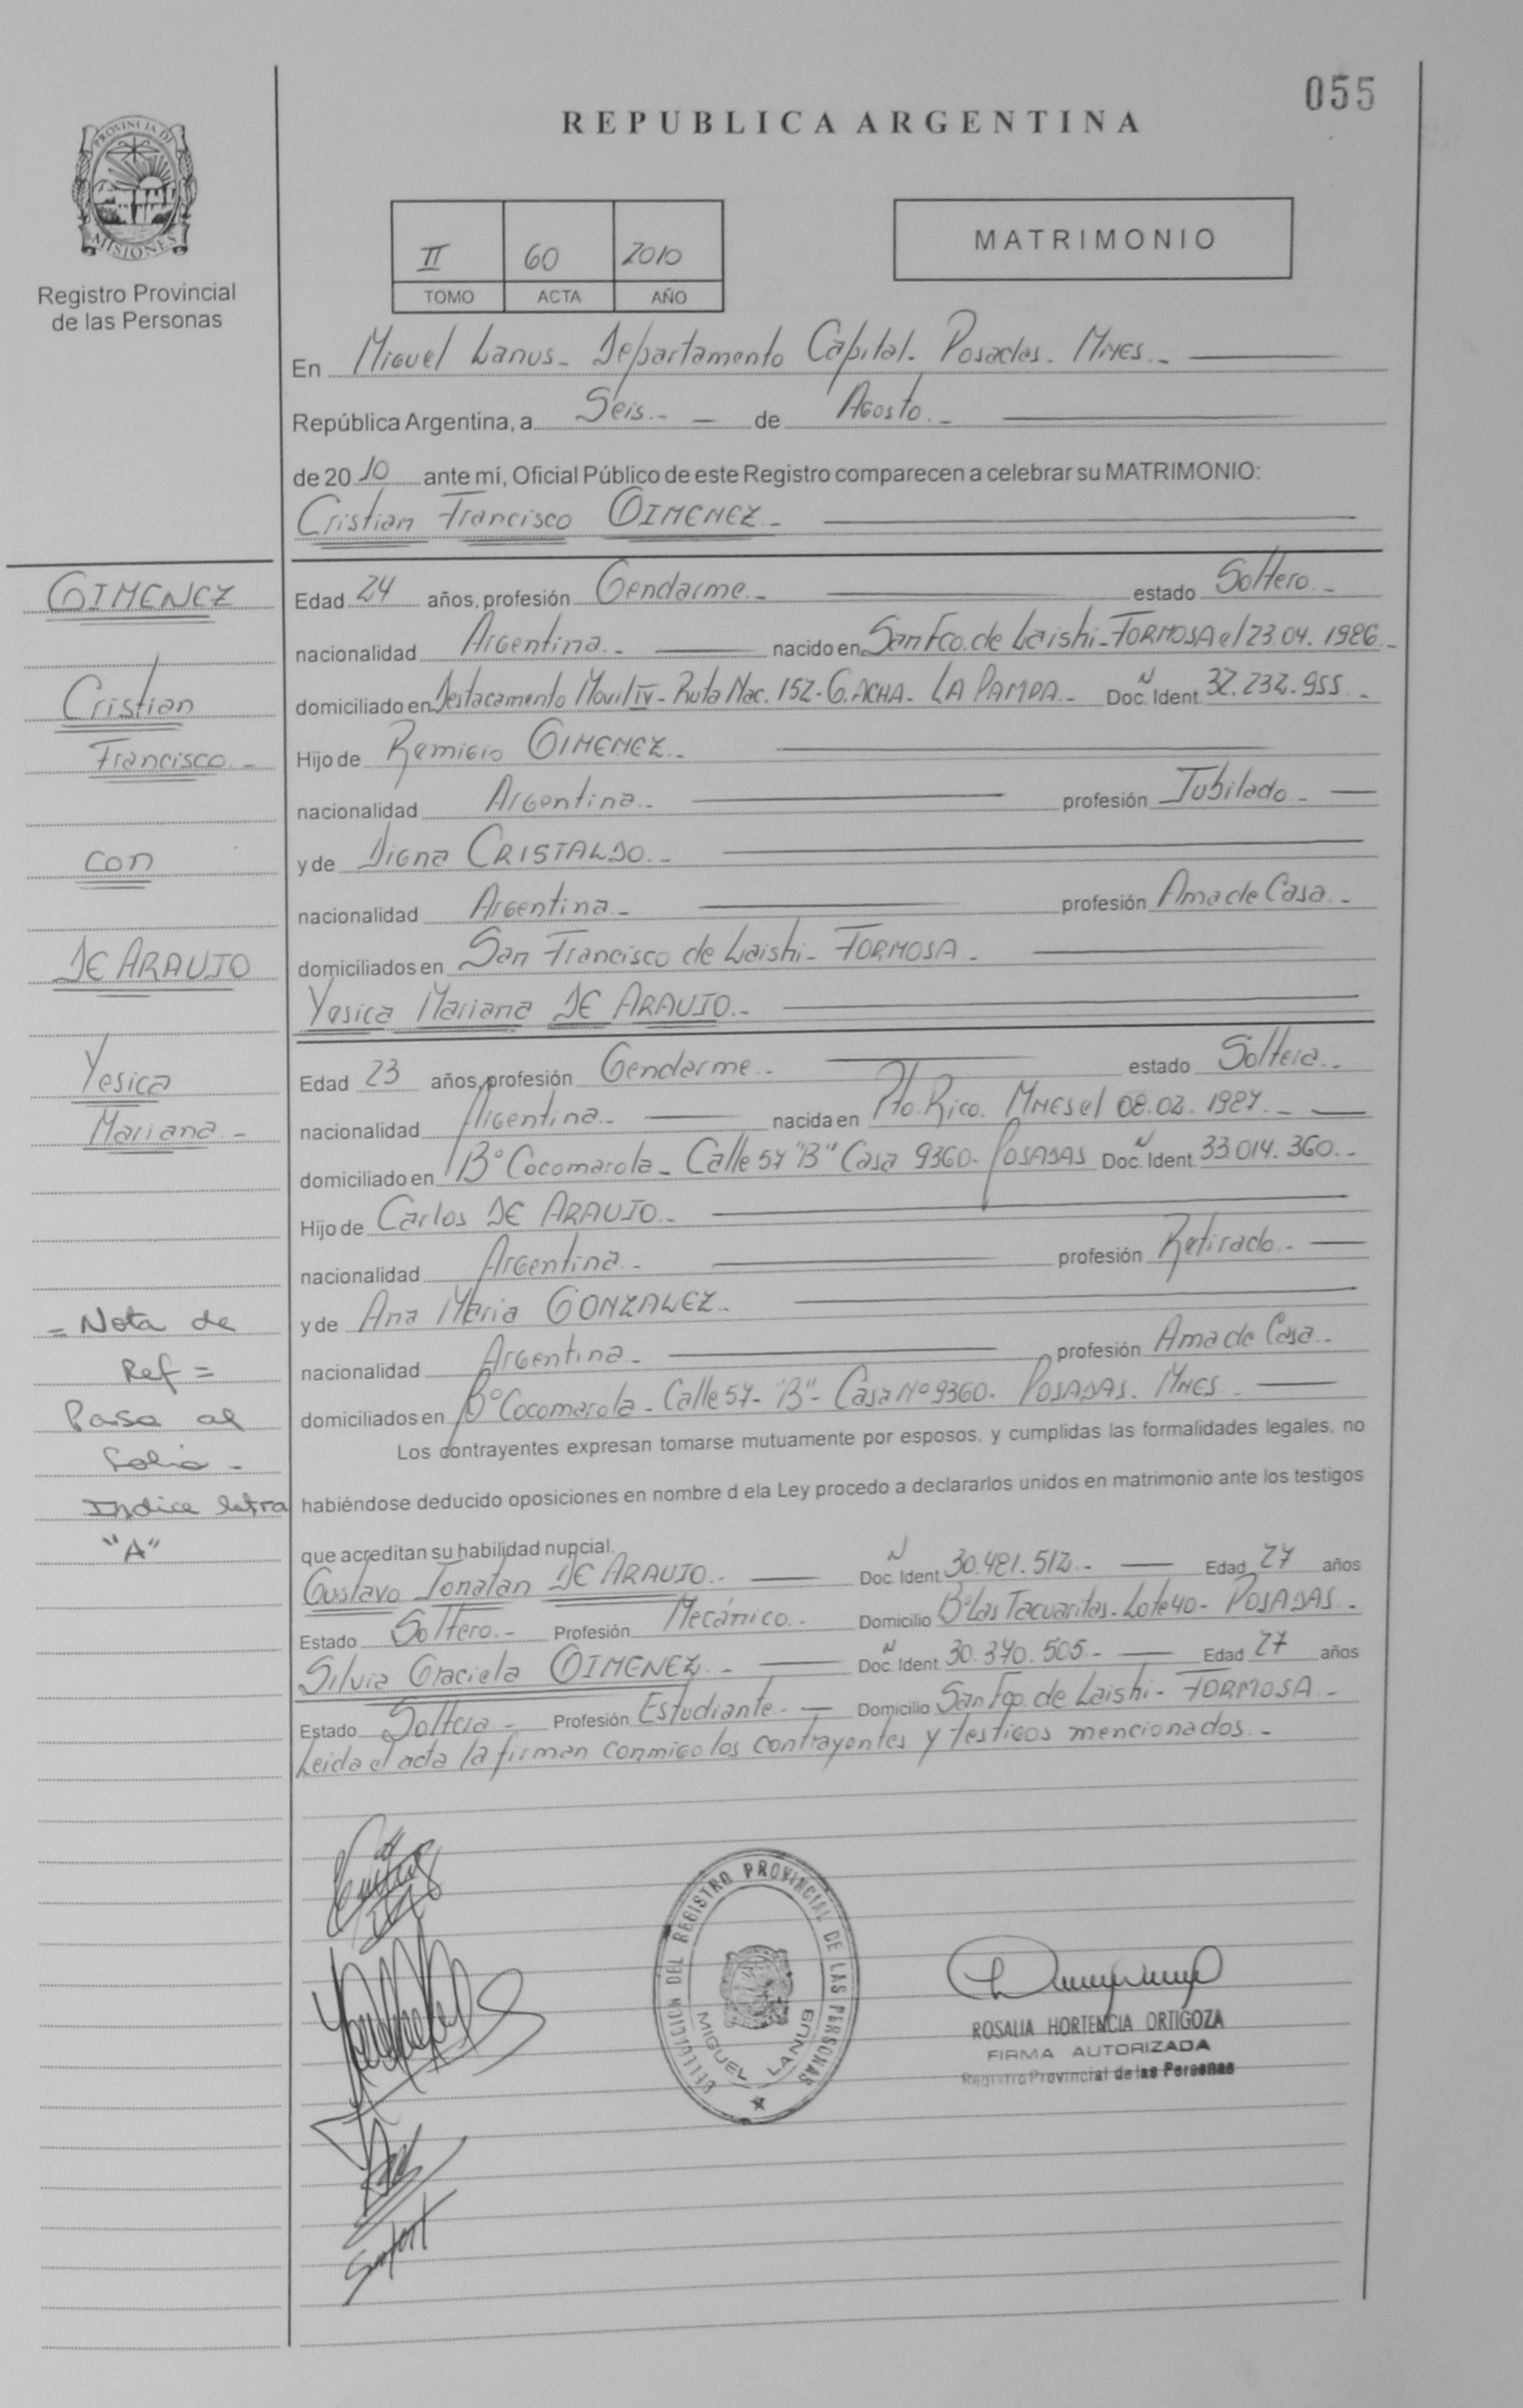 055
REPUBLICA ARGENTINA
PROVINCIA DE
MISIONES
Registro Provincial
de las Personas
II 60 2010
TOMO ACTA AÑO
MATRIMONIO
En Miguel Lanus- Departamento Capital- Posadas- Mnes.-
República Argentina, a Seis.- de Agosto.-
de 2010 ante mí, Oficial Público de este Registro comparecen a celebrar su MATRIMONIO:
Cristian Francisco GIMENEZ.-
GIMENEZ
Cristian
Francisco.-
con
DE ARAUJO
Yesica
Mariana.-
Edad 24 años, profesión Gendarme.- estado Soltero.-
nacionalidad Argentina.- nacido en San Fco. de Laishi-FORMOSA el 23.04.1986.-
domiciliado en Destacamento Movil IV- Ruta Nac. 152- G.ACHA- LA PAMPA.- Doc. Ident. N 32.232.955.-
Hijo de Remigio GIMENEZ.-
nacionalidad Argentina.- profesión Jubilado.-
y de Digna CRISTALDO.-
nacionalidad Argentina.- profesión Ama de Casa.-
domiciliados en San Francisco de Laishi- FORMOSA.-
Yesica Mariana DE ARAUJO.-
Edad 23 años, profesión Gendarme.- estado Soltera.-
nacionalidad Argentina.- nacida en Pto. Rico. Mnes el 08.02.1987.-
domiciliado en B° Cocomarola- Calle 57 "B" Casa 9360- POSADAS Doc. Ident. N 33.014.360.-
Hijo de Carlos DE ARAUJO.-
nacionalidad Argentina.- profesión Retirado.-
y de Ana Maria GONZALEZ.-
nacionalidad Argentina.- profesión Ama de Casa.-
domiciliados en B° Cocomarola- Calle 57- "B"- Casa N° 9360- POSADAS- Mnes.-
= Nota de
Ref =
Pasa al
folio -
Indice letra
"A"
Los contrayentes expresan tomarse mutuamente por esposos, y cumplidas las formalidades legales, no
habiéndose deducido oposiciones en nombre d ela Ley procedo a declararlos unidos en matrimonio ante los testigos
que acreditan su habilidad nupcial.
Gustavo Jonatan DE ARAUJO.- Doc. Ident. N 30.481.512.- Edad 27 años
Estado Soltero.- Profesión Mecánico.- Domicilio B° Las Tacuaritas- Lote 40- POSADAS.-
Silvia Graciela GIMENEZ.- Doc. Ident. N 30.370.505.- Edad 27 años
Estado Soltera.- Profesión Estudiante.- Domicilio San Fco. de Laishi- FORMOSA.-
Leida el acta la firman conmigo los contrayentes y testigos mencionados.-
DEL REGISTRO PROVINCIAL DE LAS PERSONAS
MIGUEL LANUS
ROSALIA HORTENCIA ORTIGOZA
FIRMA AUTORIZADA
Registro Provincial de las Personas